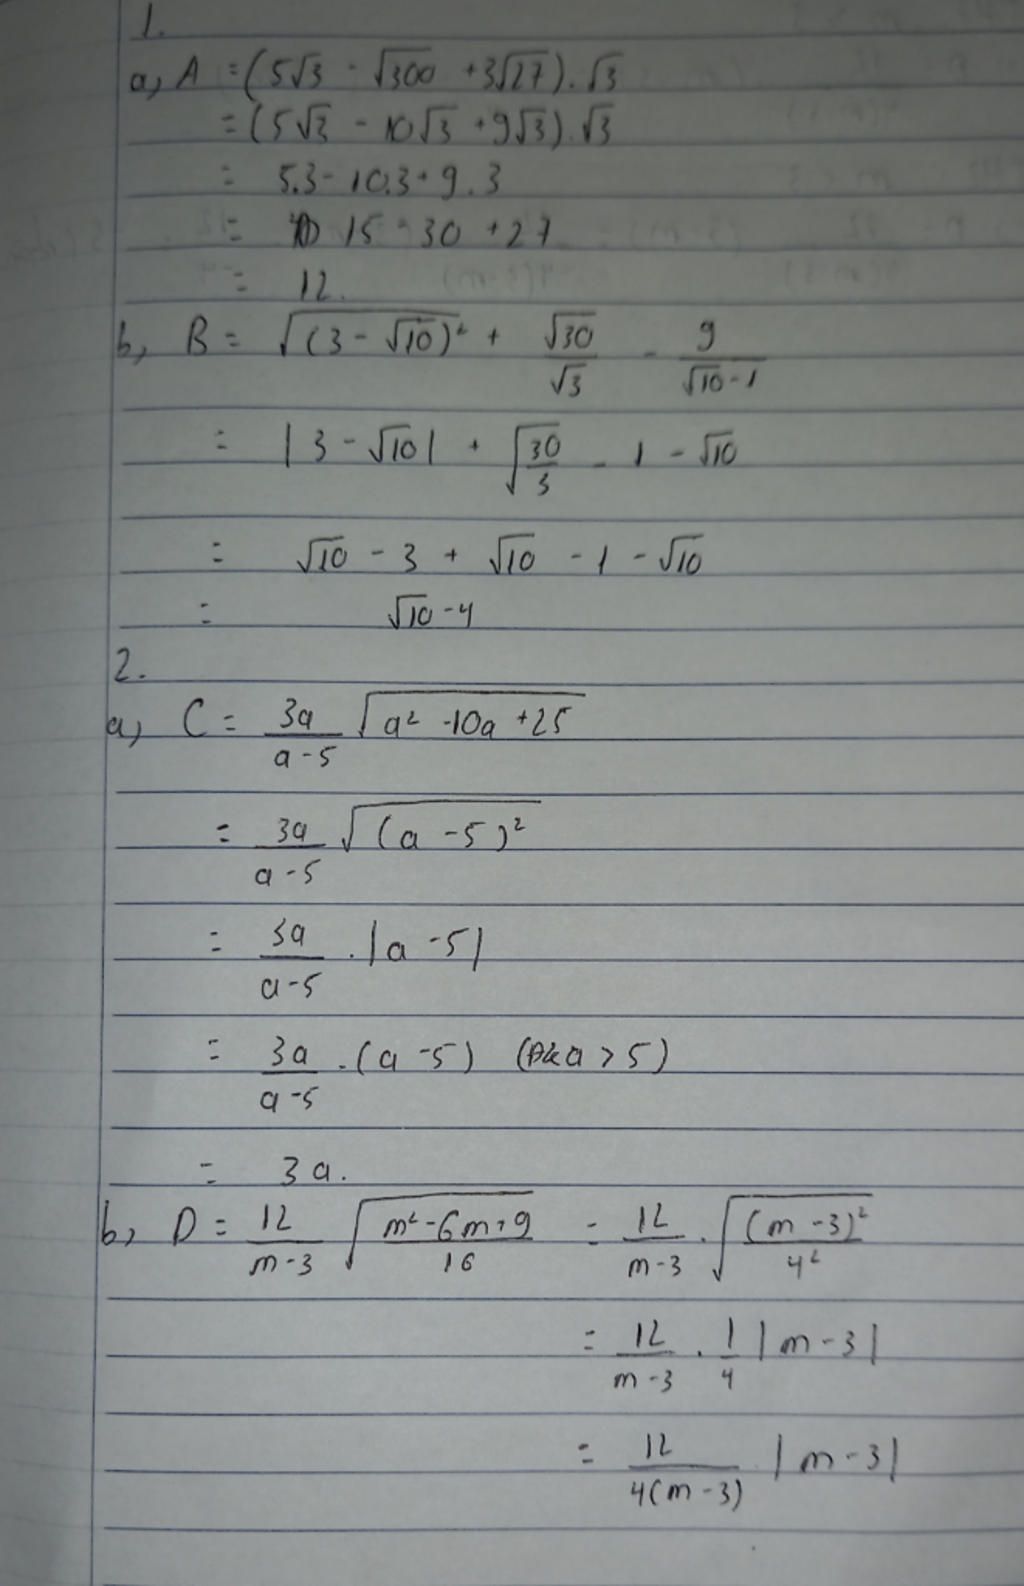 1.
a, A = (5√3 - √300 + 3√27).√3
= (5√3 - 10√3 + 9√3).√3
= 5.3 - 10.3 + 9.3
= 15 - 30 + 27
= 12.
b, B = √((3 - √10)²) + √30/√3 - 9/(√10 - 1)
= |3 - √10| + √(30/3) - 1 - √10
= √10 - 3 + √10 - 1 - √10
= √10 - 4
2.
a, C = 3a/(a - 5) √(a² - 10a + 25)
= 3a/(a - 5) √((a - 5)²)
= 3a/(a - 5) . |a - 5|
= 3a/(a - 5) . (a - 5) (a > 5)
= 3a.
b, D = 12/(m - 3) √((m² - 6m + 9)/16) = 12/(m - 3) . √((m - 3)²/4²)
= 12/(m - 3) . 1/4 |m - 3|
= 12/(4(m - 3)) . |m - 3|